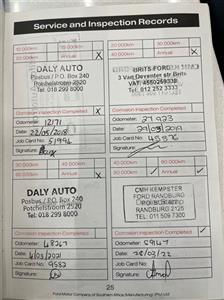 Service and Inspection Records
10 000km
15 000km
20 000km
Annual
DALY AUTO
Posbus / P.O. Box 240
Potchefstroom 2520
Tel. 018 299 8000
Corrosion Inspection Completed
Odometer: 12171
Date: 22/05/2018
Job Card No.: 51996
Signature:
BRITS FORD
3 Van Deventer str. Brits
Tel: 012 252 3333
Corrosion Inspection Completed
Odometer: 27923
Job Card No.: 45576
Signature:
30 000km
45 000km
Annual
DALY AUTO
Posbus / P.O. Box 240
Potchefstroom 2520
Tel. 018 299 8000
Corrosion Inspection Completed
Odometer: 48267
Date: 4/03/2021
Job Card No.: 9532
Signature:
Annual
CMH KEMPSTER
FORD RANDBURG
RANDBURG 2125
TEL: 011 509 7300
Corrosion Inspection Completed
Odometer:
Date: 28/03/22
Job Card No.:
Signature:
25
Ford Motor Company of Southern Africa Manufacturing (Pty) Ltd